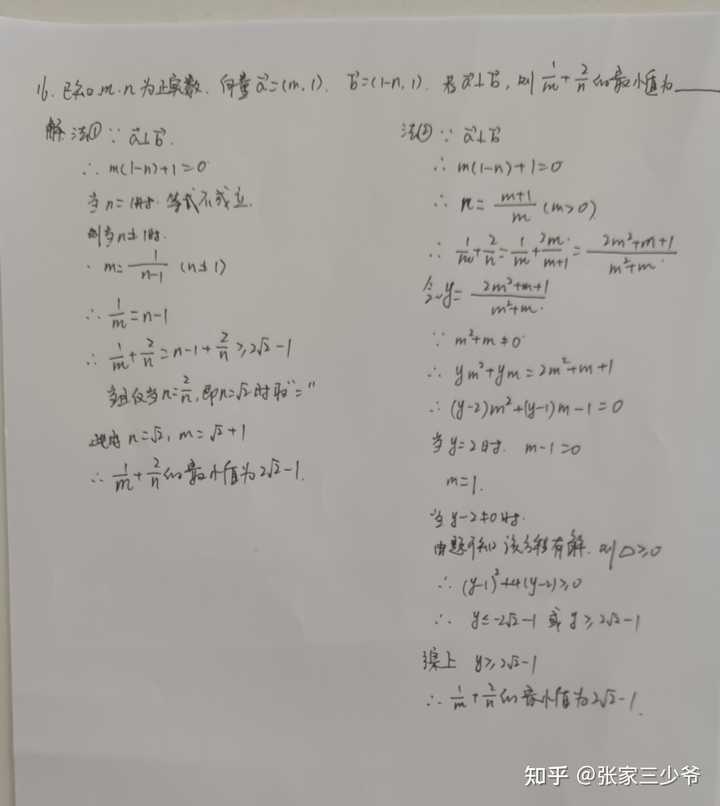 16. 已知 m、n 为正实数. 向量 a⃗=(m,1). b⃗=(1-n,1). 若 a⃗⊥b⃗, 则 1/m+2/n 的最小值为____
解 法① ∵ a⃗⊥b⃗.
∴ m(1-n)+1=0
当 n=1时. 等式不成立.
则当n≠1时.
∴ m=1/(n-1) (n≠1)
∴ 1/m=n-1
∴ 1/m+2/n=n-1+2/n≥2√2-1
当且仅当n=2/n, 即n=√2时取"="
此时 n=√2, m=√2+1
∴ 1/m+2/n的最小值为2√2-1.
法② ∵ a⃗⊥b⃗
∴ m(1-n)+1=0
∴ n=(m+1)/m (m>0)
∴ 1/m+2/n=1/m+2m/(m+1)=(2m²+m+1)/(m²+m)
令y=(2m²+m+1)/(m²+m)
∵ m²+m≠0
∴ ym²+ym=2m²+m+1
∴ (y-2)m²+(y-1)m-1=0
当 y=2时. m-1=0
m=1.
当 y-2≠0时.
由题可知 该方程有解. 则△≥0
∴ (y-1)²+4(y-2)≥0
∴ y≤-2√2-1 或 y≥2√2-1
综上 y≥2√2-1
∴ 1/m+2/n的最小值为2√2-1.
知乎 @张家三少爷